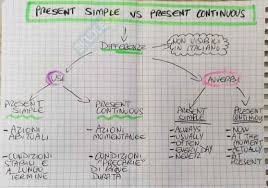 PRESENT SIMPLE VS PRESENT CONTINUOUS
DIFFERENZE
NON VISIBILI
IN ITALIANO
USI
AVVERBI
PRESENT
SIMPLE
- AZIONI
ABITUALI
- CONDIZIONI
STABILI E
A LUNGO
TERMINE
PRESENT
CONTINUOUS
- AZIONI
MOMENTANEE
- CONDIZIONI
"PRECARIE"
DI
DURATA
PRESENT
SIMPLE
- ALWAYS
- USUALLY
- OFTEN
- EVERY DAY
- NEVER
PRESENT
CONTINUOUS
- NOW
- AT THE
MOMENT
- ACTUALLY
- AT
PRESENT